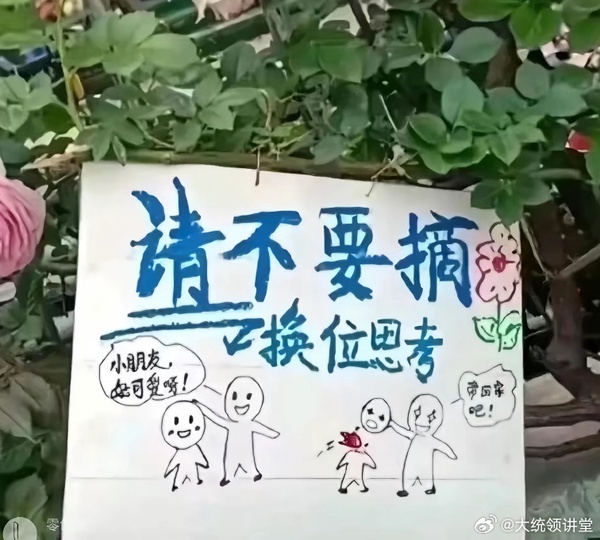 请不要摘
换位思考
小朋友,
好可爱呀!
带回家
吧!
@大统领讲堂